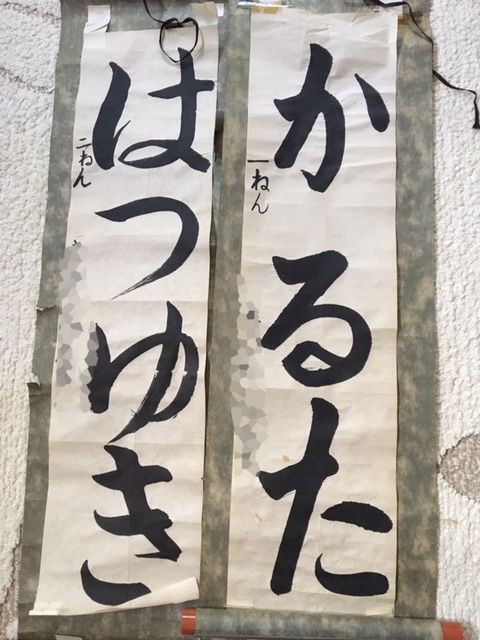 かるた
一ねん
はつゆき
二ねん